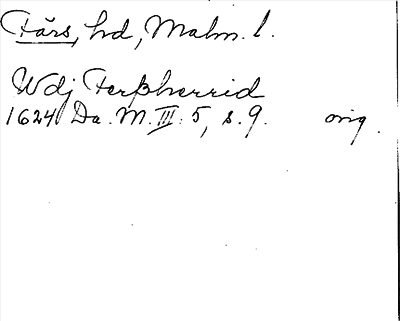 Färs, hd, Malm. l.
Wdj Ferßherrid
1624 Da. M. III. 5, s. 9. orig.